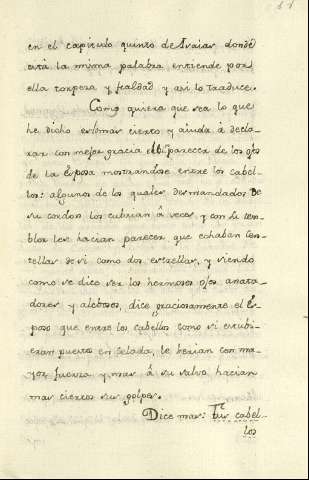 en el capitulo quinto de Isaias donde
està la misma palabra entiende por
ella torpeza y fealdad y asi lo traduce.
Como quiera que sea lo que
he dicho es lo mas cierto y aiuda á decla-
rar con mejor gracia el parecer de los ojos
de la Esposa mostrandose entre los cabel-
los: algunos de los quales desmandados de
su cordon los cubrian á veces, y con su tem-
blor les hacian parecer que echaban cen-
tellas de si como dos estrellas, y siendo
como se dice ser los hermosos ojos mata-
dores y alebosos, dice graciosamente el Es-
poso que entre los cabellos como si estubi-
eran puestos en celada, le herian con ma-
yor fuerza y mas á su salvo hacian
mas ciertos sus golpes.
Dice mas: Tus cabel-
los